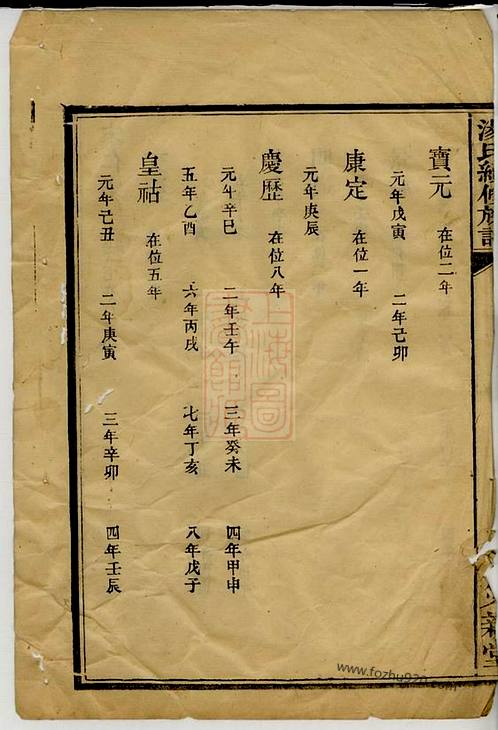 寶元 在位二年
元年戊寅 二年己卯
康定 在位一年
元年庚辰
慶歷 在位八年
元年辛巳 二年壬午 三年癸未 四年甲申
五年乙酉 六年丙戌 七年丁亥 八年戊子
皇祜 在位五年
元年己丑 二年庚寅 三年辛卯 四年壬辰
上海圖
書館藏
www.fozhu920.com